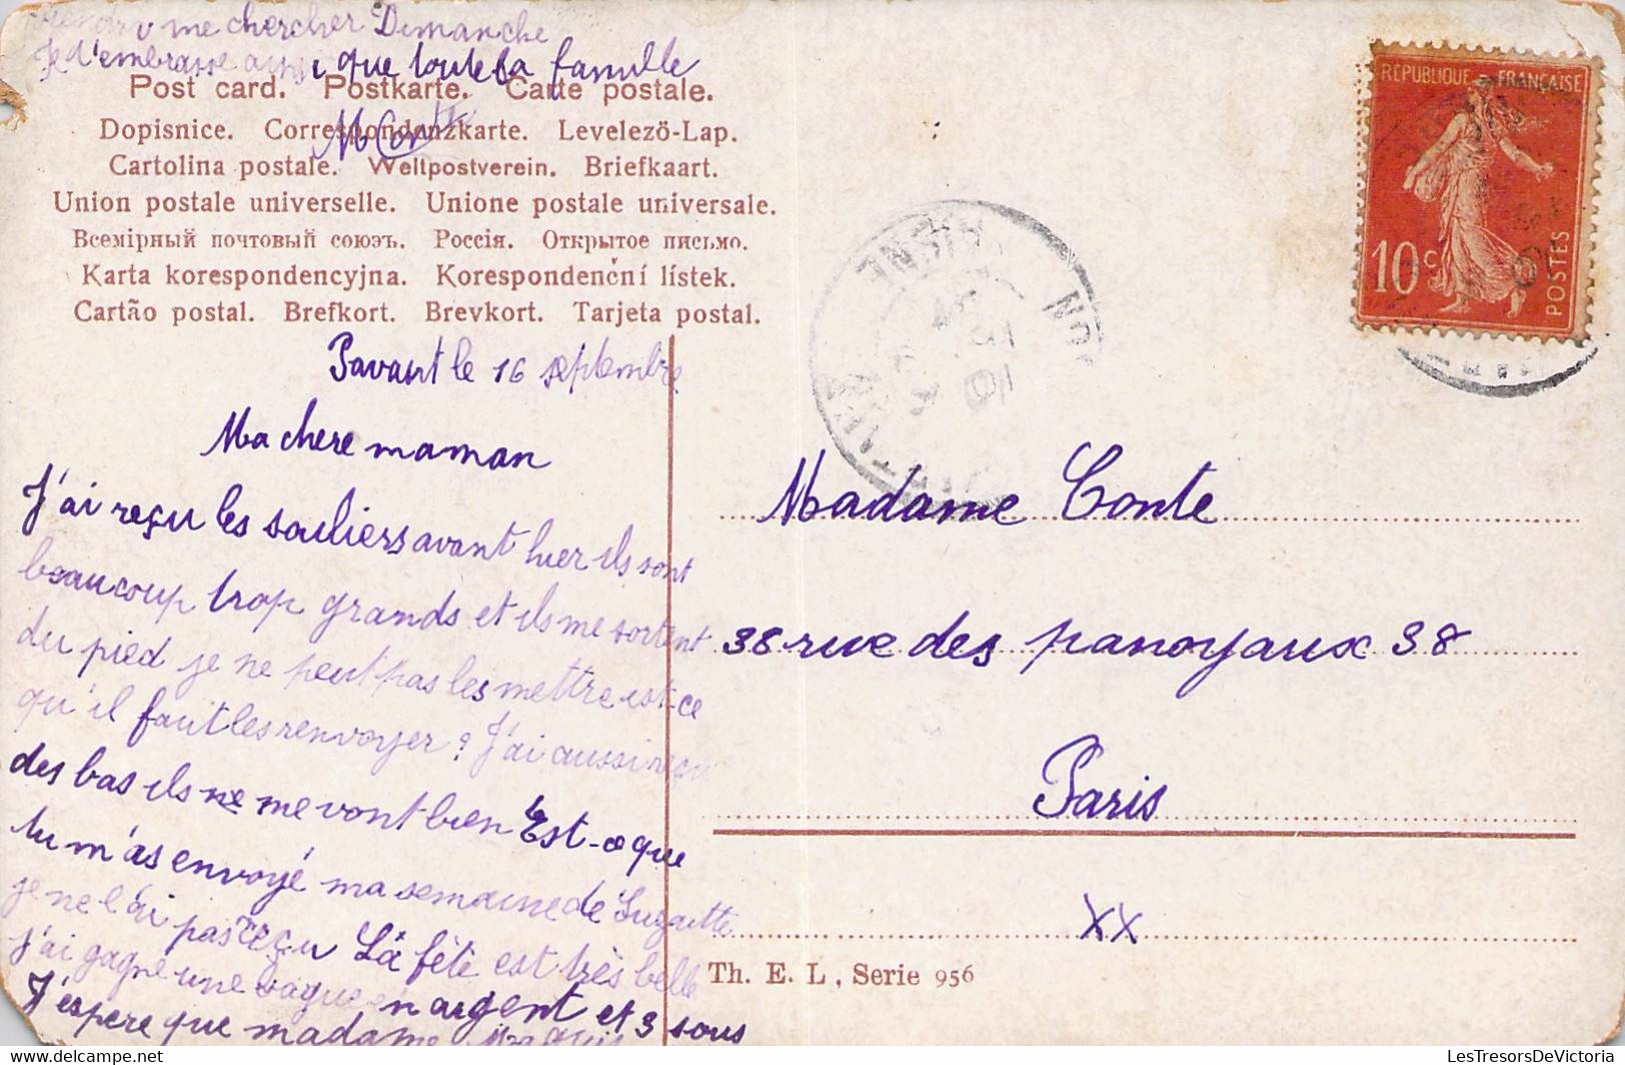 me chercher Dimanche
Je t'embrasse ainsi que toute la famille
Post card. Postkarte. Carte postale.
Dopisnice. Correspondenzkarte. Levelezö-Lap.
M Conte
Cartolina postale. Weltpostverein. Briefkaart.
Union postale universelle. Unione postale universale.
Всемірный почтовый союзъ. Россія. Открытое письмо.
Karta korespondencyjna. Korespondenční lístek.
Cartão postal. Brefkort. Brevkort. Tarjeta postal.
Pavant le 16 septembre
Ma chere maman
J'ai reçu les souliers avant hier ils sont
beaucoup trop grands et ils me sortent
du pied je ne peut pas les mettre est-ce
qu'il faut les renvoyer ? J'ai aussi reçu
des bas ils ne me vont bien Est-ce que
tu m'as envoyé ma semaine de Suzette
je ne l'ai pas reçu La fête est très belle
J'ai gagné une bague en argent et 3 sous
J'espere que madame
RÉPUBLIQUE FRANÇAISE
10 c
POSTES
Madame Conte
38 rue des panoyaux 38
Paris
XX
Th. E. L, Serie 956
delcampe.net
LesTresorsDeVictoria